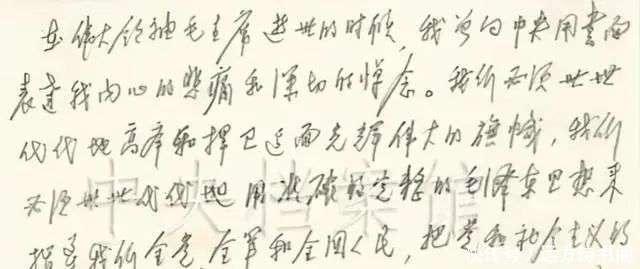 在伟大领袖毛主席逝世的时候，我曾向中央用书面
表达我内心的悲痛和深切的悼念。我们必须世世
代代地高举和捍卫这面光辉伟大的旗帜，我们
必须世世代代地用准确的完整的毛泽东思想来
指导我们全党、全军和全国人民，把党和社会主义的
中央档案馆